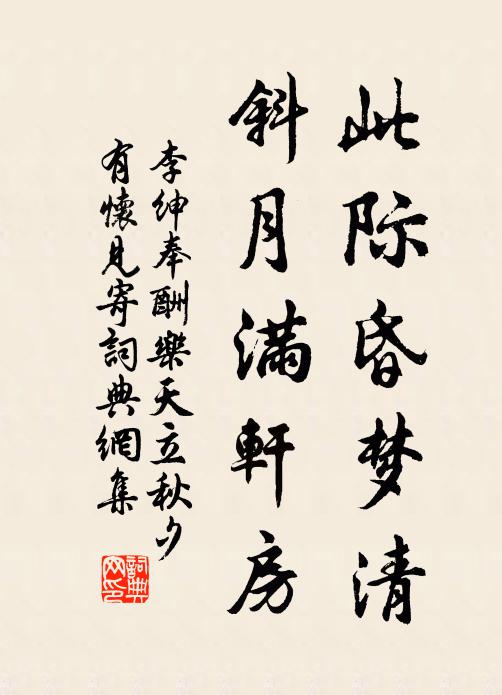 此际昏梦清
斜月满軒房
李绅奉酬樂天立秋夕
有懷見寄詞典網集
詞典
网印